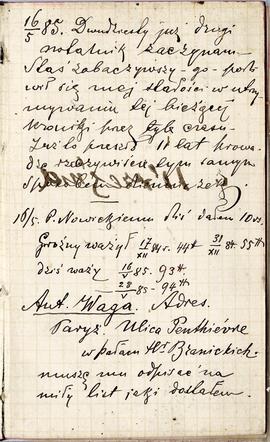 16/5 85. Dwudziesty już drugi
notatnik zaczynam.
Staś zobaczywszy go
wił się mej stałości w utrzy
mywaniu tej bieżącej
kroniki przez tyle czasu.
Jest to przeszło 11 lat prowa
dzę rzeczywiście tym samym
16/5. P. Nowickiemu dziś dałem 10 rs.
Groźny ważył 17/XII 84 r. 44 ℔ 31/XII 84. 55 ℔
dziś waży 16/V 85. 93 ℔
28/V 85 - 94 ℔
Ant. Waga. Adres.
Paryż Ulica Penthièvre
w pałacu Hr Branickich
muszę mu odpisać na
miły list jaki dostałem.